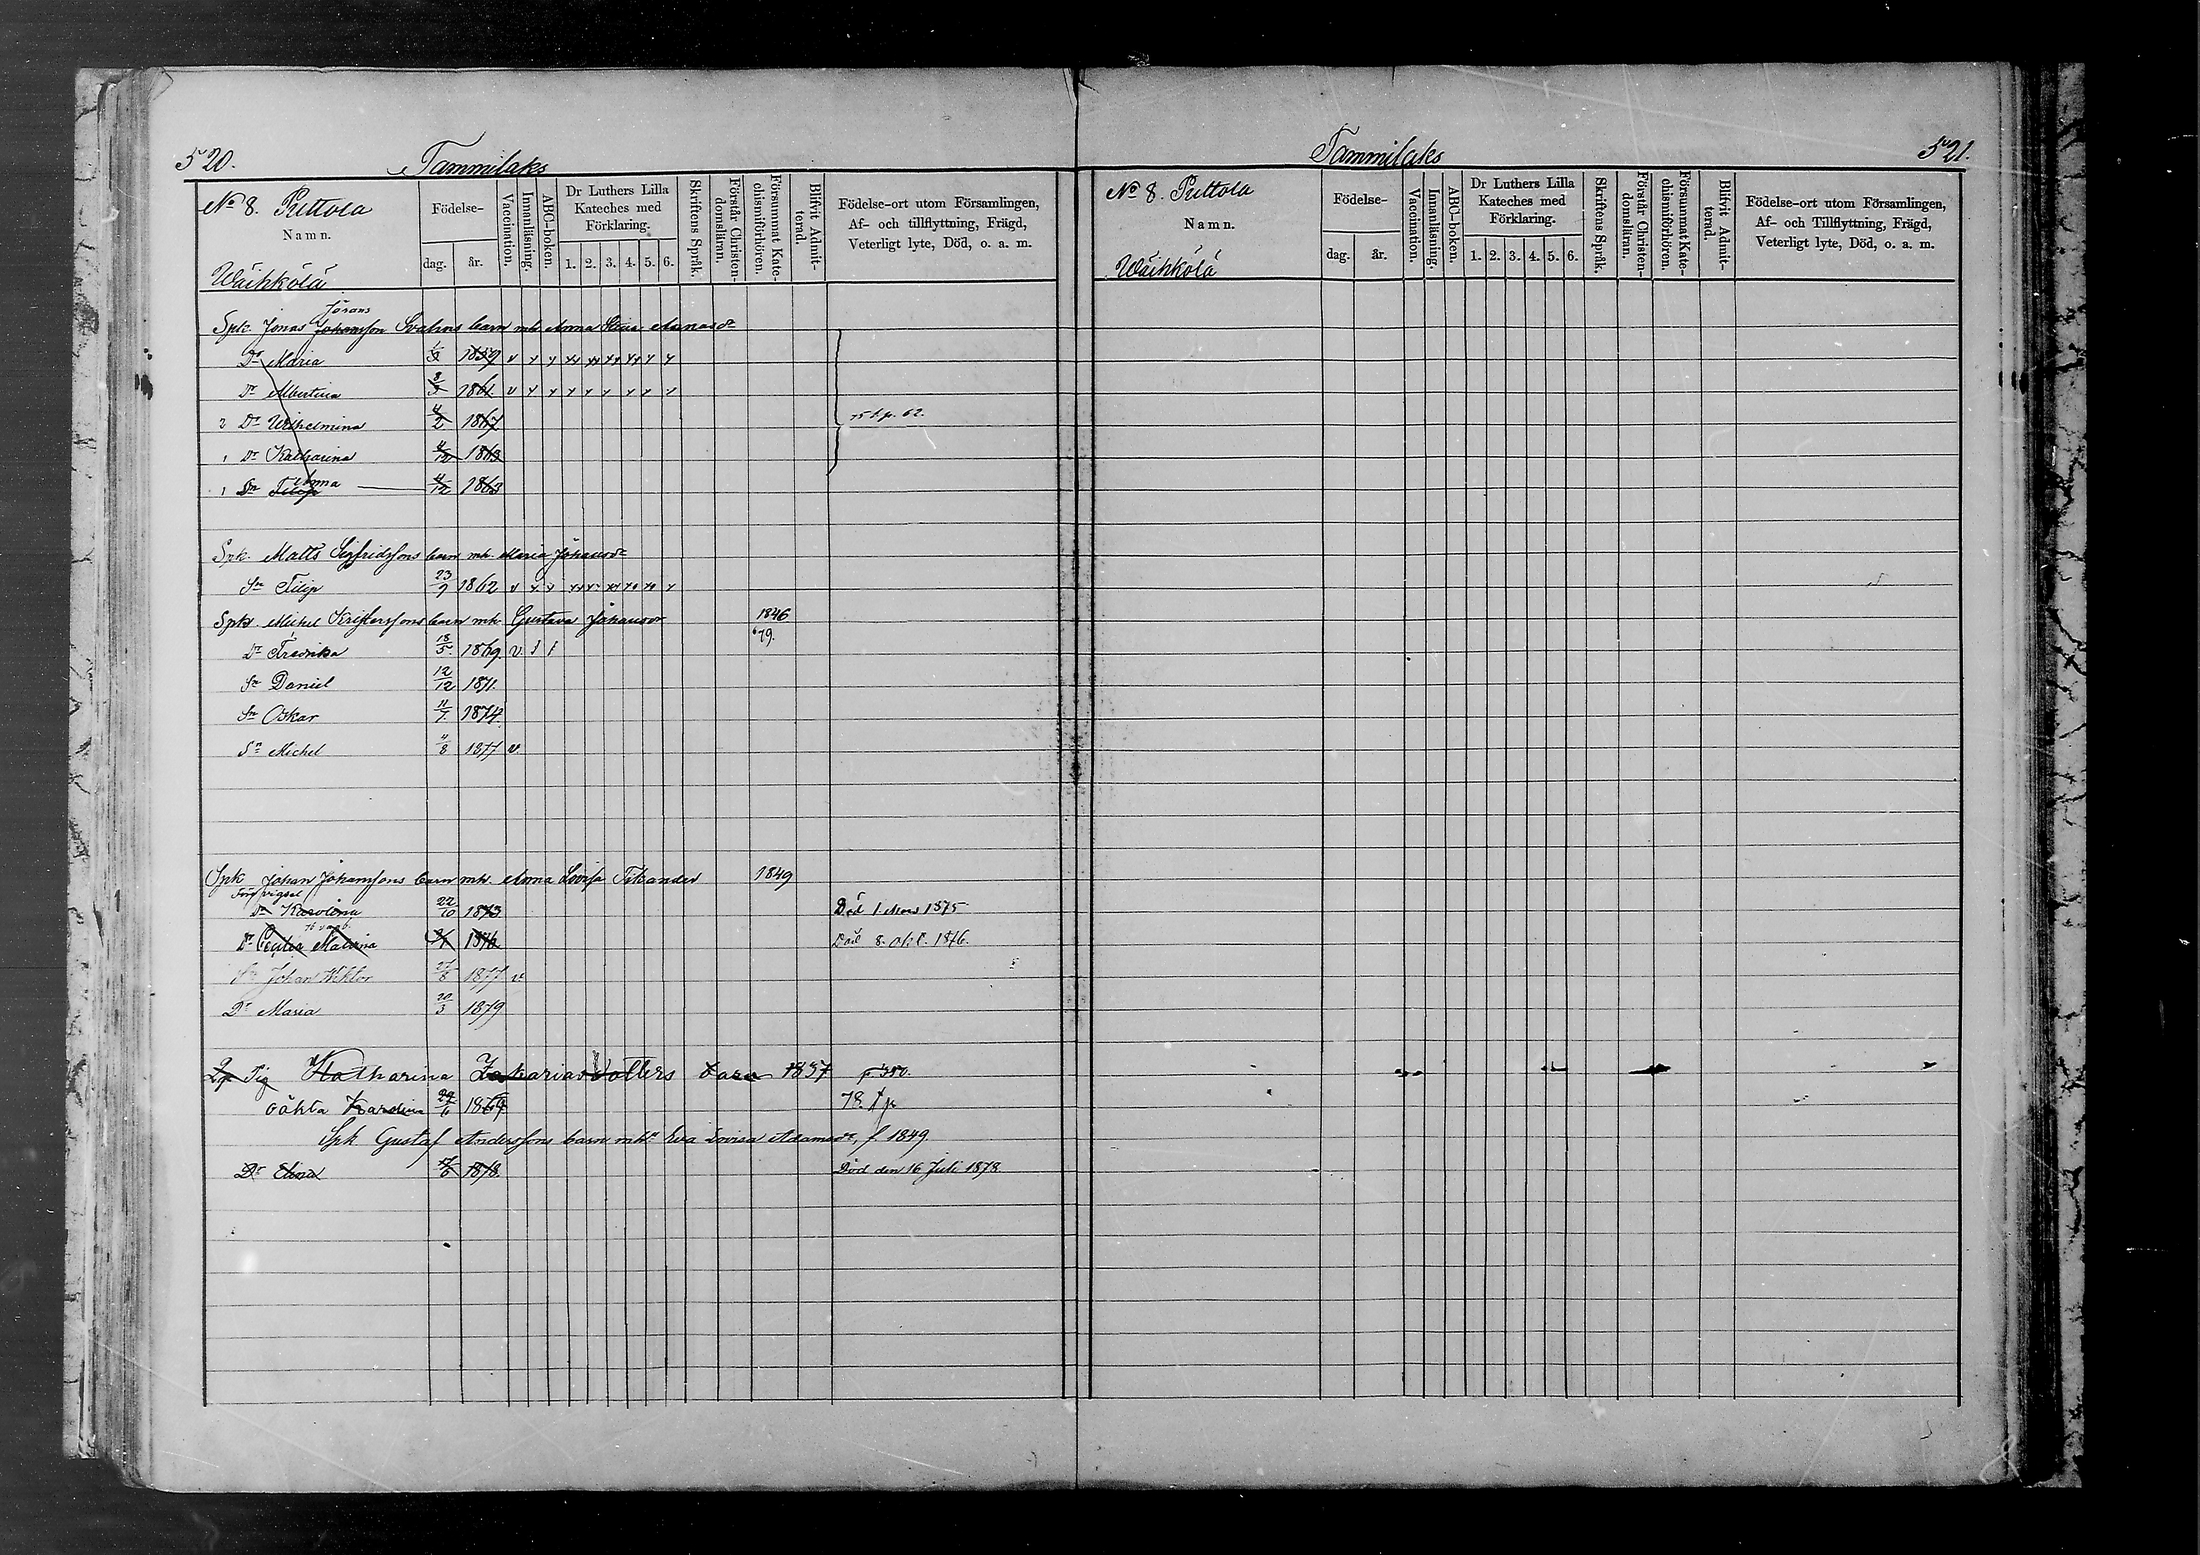 520.
Tammilaks
No 8. Puttola
Namn.
Wäihkölä
Födelse-
dag.
år.
Vaccination.
Innanläsning.
ABC-boken.
Dr Luthers Lilla
Kateches med
Förklaring.
1. 2. 3. 4. 5. 6.
Skriftens Språk.
Förstår Christen-
domsläran.
Försummat Kate-
chismiförhören.
Blifvit Admit-
terad.
Födelse-ort utom Församlingen,
Af- och tillflyttning, Frägd,
Veterligt lyte, Död, o. a. m.
Jörans
Spk. Jonas Johansson Svahns barn mh Anna Stina
Dr Maria 1859 v
Dr Albertina 8/3 1861 v
2 Dr Wilhelmina 4/2 1867
1 Dr Katharina 4/12 1863
Anna
1 Sn Filip 4/12 1863
Spk. Matts Sigfridssons barn mh. Maria Johansdr
Sn Filip 23/9 1862 v
Spk. Michel Kristerssons barn mh. Gustava Johansdr 1846
79.
Dr Fredrika 18/5 1869. v.
Sn Daniel 12/12 1871.
Sn Oskar 11/7 1874.
Sn Michel 4/8 1877 v.
Spk Johan Johanssons barn mh. Anna Lovisa Tikander 1849
Före vigsel
Dr Karolina 22/10 1873 Död 1 Mars 1875
Dr Cecilia Malvina 1876 Död 8. okt. 1876.
Sn Johan Viktor 27/8 1877 v.
Dr Maria 20/3 1879
Pig Katharina Zakarias dotters barn 1837 p 350.
oäkta Karolina 29/6 1869 78.
Spk Gustaf Anderssons barn mhn Eva Lovisa Adamsdr, f 1849.
Dr 1878. Död den 16 Juli 1878
Tammilaks
521.
No 8. Puttola
Namn.
Wäihkölä
Födelse-
dag.
år.
Vaccination.
Innanläsning.
ABC-boken.
Dr Luthers Lilla
Kateches med
Förklaring.
1. 2. 3. 4. 5. 6.
Skriftens Språk.
Förstår Christen-
domsläran.
Försummat Kate-
chismiförhören.
Blifvit Admit-
terad.
Födelse-ort utom Församlingen,
Af- och Tillflyttning, Frägd,
Veterligt lyte, Död, o. a. m.